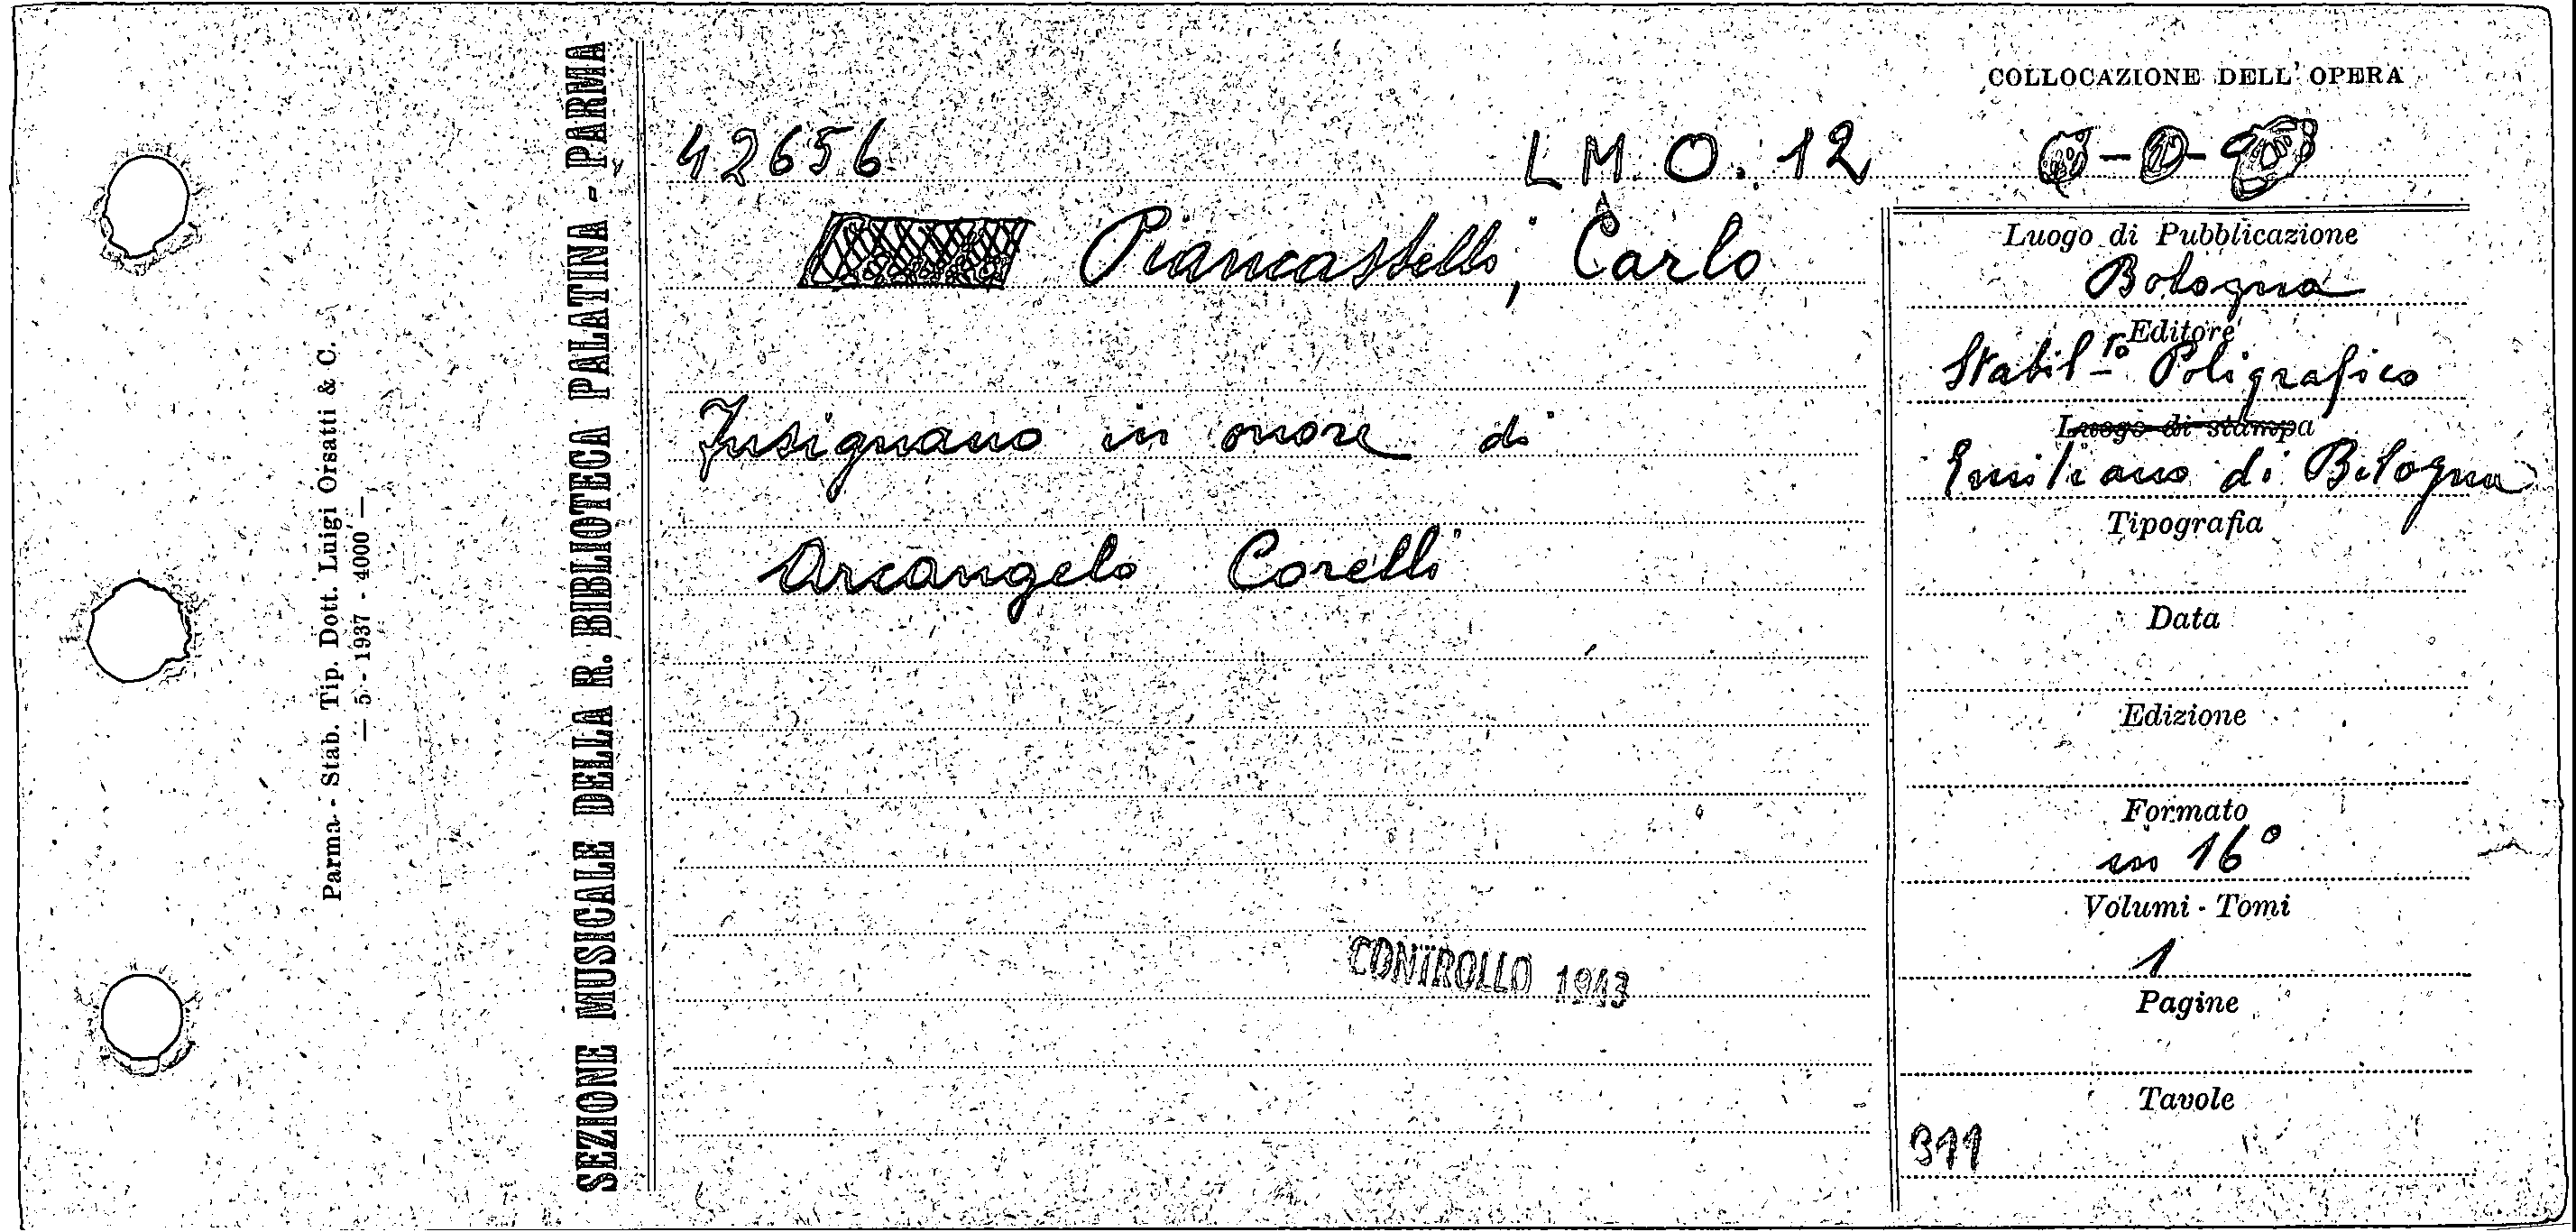 SEZIONE MUSICALE DELLA R. BIBLIOTECA PALATINA - PARMA
Parma - Stab. Tip. Dott. Luigi Orsatti & C.
— 5 - 1937 - 4000 —
COLLOCAZIONE DELL' OPERA
42656 LM. O. 12
Piancastelli, Carlo
Fusignano in onore di
Arcangelo Corelli
CONTROLLO 1943
Luogo di Pubblicazione
Bologna
Editore
Stabil.to Poligrafico
Luogo di stampa
Emiliano di Bologna
Tipografia
Data
Edizione
Formato
in 16°
Volumi - Tomi
1
Pagine
Tavole
311